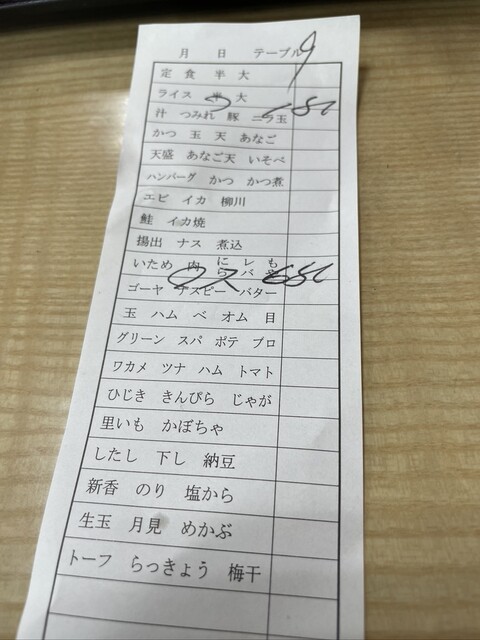 月 日 テーブル 9
定 食 半 大
ライス 半 大
汁 つみれ 豚 ニラ玉
かつ 玉 天 あなご
天盛 あなご天 いそべ
ハンバーグ かつ かつ煮
エビ イカ 柳川
鮭 イカ焼
揚出 ナス 煮込
いため 肉 にら レバ もや
ゴーヤ ナスピー バター
玉 ハム ベ オム 目
グリーン スパ ポテ ブロ
ワカメ ツナ ハム トマト
ひじき きんぴら じゃが
里いも かぼちゃ
したし 下し 納豆
新香 のり 塩から
生玉 月見 めかぶ
トーフ らっきょう 梅干